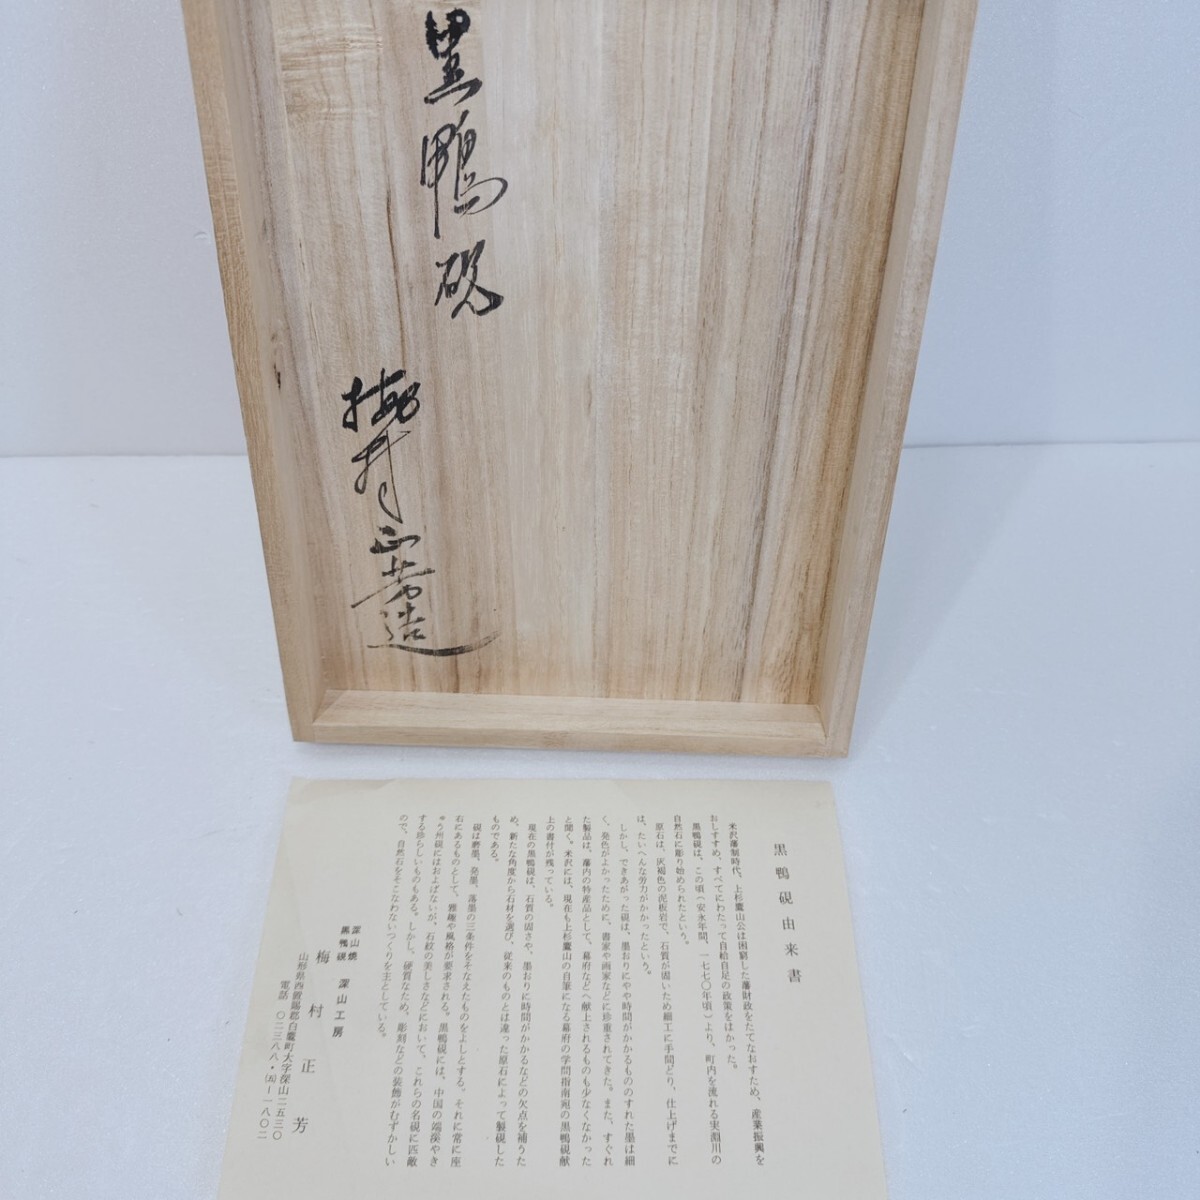 黒鴨硯
梅村正芳造
黒鴨硯由来書
米沢藩制時代、上杉鷹山公は困窮した藩財政をたてなおすため、産業振興を
おしすすめ、すべてにわたって自給自足の政策をはかった。
黒鴨硯は、この頃(安永年間、一七七〇年頃)より、町内を流れる実淵川の
自然石に彫り始められたという。
原石は、灰褐色の泥板岩で、石質が固いため細工に手間どり、仕上げまでに
は、たいへんな労力がかかったという。
しかし、できあがった硯は、墨おりにやや時間がかかるもののすれた墨は細
く、発色がよかったために、書家や画家などに珍重されてきた。また、すぐれ
た製品は、藩内の特産品として、幕府などへ献上されるものも少なくなかった
と聞く。米沢には、現在も上杉鷹山の自筆になる幕府の学問指南宛の黒鴨硯献
上の書付が残っている。
現在の黒鴨硯は、石質の固さや、墨おりに時間がかかるなどの欠点を補うた
め、新たな角度から石材を選び、従来のものとは違った原石によって製硯した
ものである。
硯は磨墨、発墨、藩墨の三条件をそなえたものをよしとする。それに常に座
右にあるものとして、雅趣や風格が要求される。黒鴨硯には、中国の端渓やき
ゅう州硯にはおよばないが、石紋の美しさなどにおいて、これらの名硯に匹敵
する珍らしいものもある。しかし、硬質なため、彫刻などの装飾がむずかしい
ので、自然石をそこなわないつくりを主としている。
深山焼
黒鴨硯 深山工房
梅村正芳
山形県西置賜郡白鷹町大字深山二五三〇
電話 〇二三八八・(五)ー一八〇二